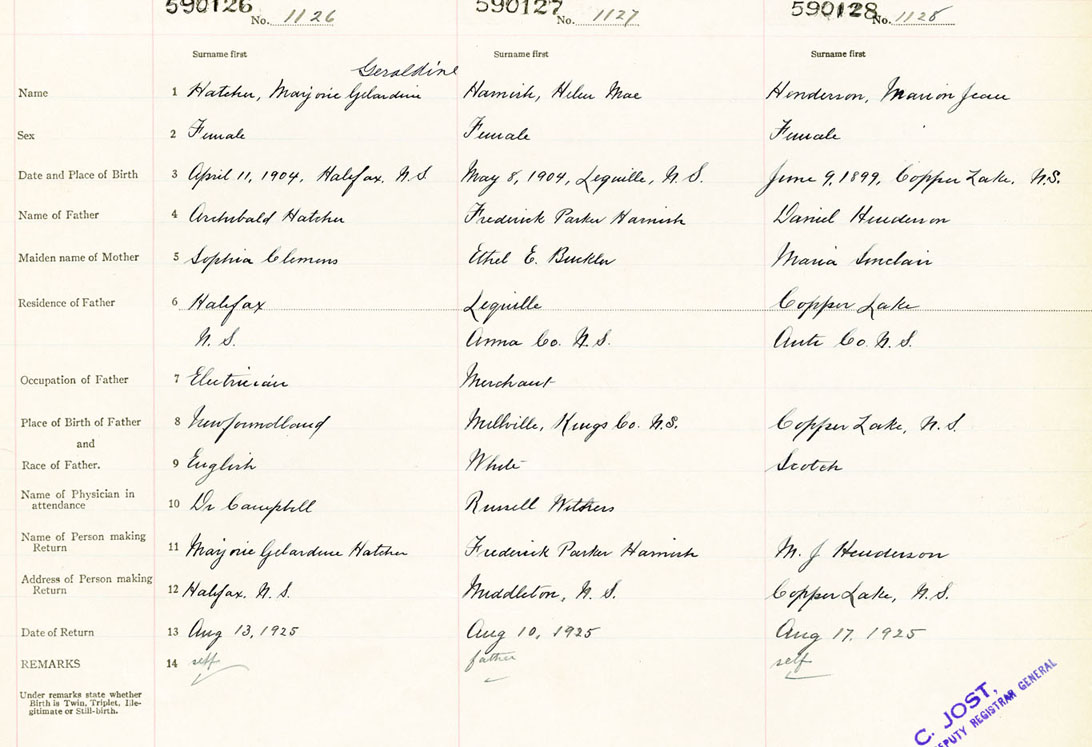 590126 No. 1126 590127 No. 1127 590128 No. 1128
Surname first Surname first Surname first
Geraldine
Name 1 Hatcher, Marjorie Gelardine Harnish, Helen Mae Henderson, Marion Jean
Sex 2 Female Female Female
Date and Place of Birth 3 April 11, 1904, Halifax, N.S May 8, 1904, Lequille, N.S. June 9, 1899, Copper Lake, N.S.
Name of Father 4 Archibald Hatcher Frederick Parker Harnish Daniel Henderson
Maiden name of Mother 5 Sophia Clemens Ethel E. Buckler Maria Sinclair
Residence of Father 6 Halifax Lequille Copper Lake
N.S. Anna Co. N.S. Anti Co. N.S.
Occupation of Father 7 Electrician Merchant
Place of Birth of Father 8 Newfoundland Millville, Kings Co. N.S. Copper Lake, N.S.
and
Race of Father. 9 English White Scotch
Name of Physician in attendance 10 Dr Campbell Russell Withers
Name of Person making Return 11 Marjorie Gelardine Hatcher Frederick Parker Harnish M. J Henderson
Address of Person making Return 12 Halifax. N.S. Middleton, N.S. Copper Lake, N.S.
Date of Return 13 Aug 13, 1925 Aug 10, 1925 Aug 17, 1925
REMARKS 14 self father self
Under remarks state whether
Birth is Twin, Triplet, Ille-
gitimate or Still-birth.
C. JOST,
DEPUTY REGISTRAR GENERAL